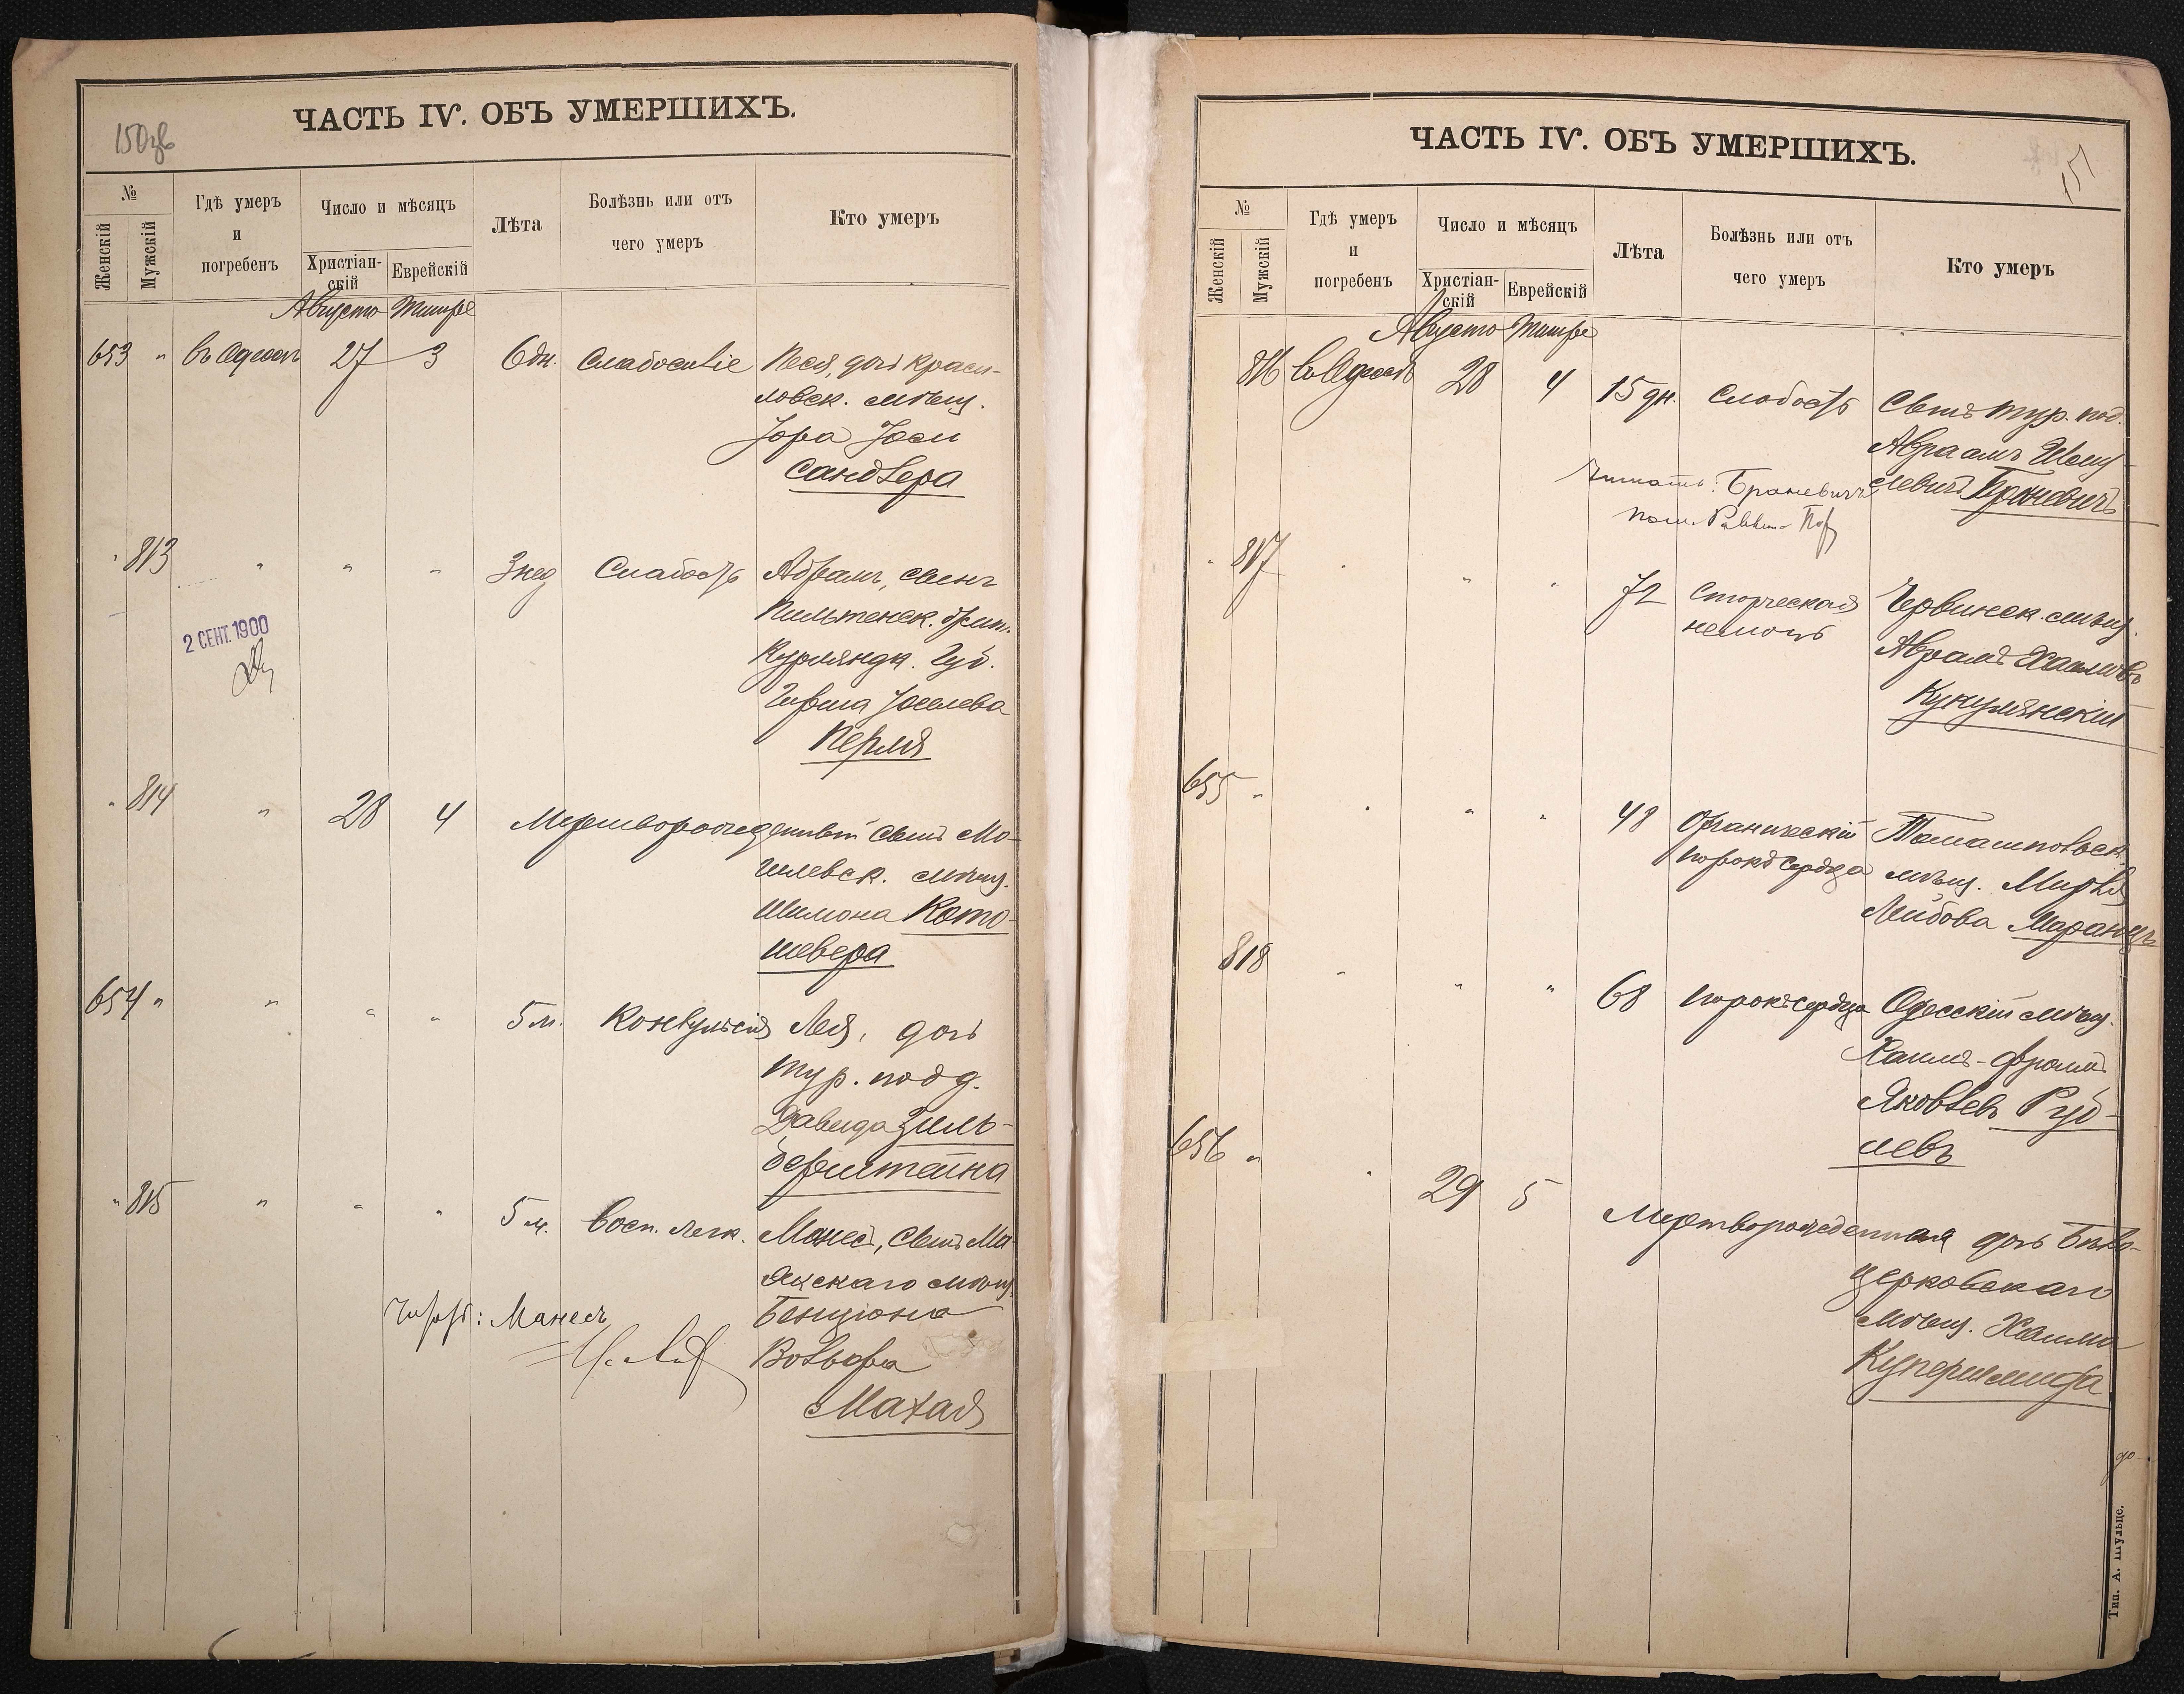 150 об
ЧАСТЬ IV. ОБЪ УМЕРШИХЪ.
№
Женскій
Мужскій
Гдѣ умеръ
и
погребенъ
Число и мѣсяцъ
Христіан-
скій
Еврейскій
Лѣта
Болѣзнь или отъ
чего умеръ
Кто умеръ
Августъ Тишре
653 " въ Одессѣ 27 3 6 дн. Слабосиліе Песя, дочь краси-
ловск. мѣщ.
Іося
Сандлера
" 813 " " " 3 нед Слабость Абрамъ, сынъ
Пильтенск.
Курляндск. Губ.
Гирша Іоселева
Перля
2 СЕНТ. 1900
" 814 " 28 4 Мертворожденный сынъ Мо-
гилевск. мѣщ.
Шимона Кото-
шевера
654 " " " " 5 м. Конвульсія Лея, дочь
тур. подд.
Давида Зиль-
берштейна
" 815 " " " 5 м. Восп. легк. Монесъ, сынъ Ма-
якскаго мѣщ.
Бенціона
Вольфа
Махля
Читать: Манесъ
151
ЧАСТЬ IV. ОБЪ УМЕРШИХЪ.
№
Женскій
Мужскій
Гдѣ умеръ
и
погребенъ
Число и мѣсяцъ
Христіан-
скій
Еврейскій
Лѣта
Болѣзнь или отъ
чего умеръ
Кто умеръ
Августъ Тишре
816 въ Одессѣ 28 4 15 дн. Слабость Сынъ тур. под.
Авраамъ
Читать: Браневичъ
" 817 " " " 72 Старческая Червинск. мѣщ.
немощь Аврамъ Хаимовъ
Кукулянскій
655 " " " " 48 Органическій Томашпольск.
порокъ сердца мѣщ. Мирля
Лейбова Маранцъ
818 " " " 68 порокъ сердца Одесскій мѣщ.
Хаимъ-Фроимъ
Яковлевъ Руб-
левъ
656 " " 29 5 Мертворожденная дочь Бѣло-
церковскаго
мѣщ. Хаима
Купершмидта
Тип. А. Шульце.